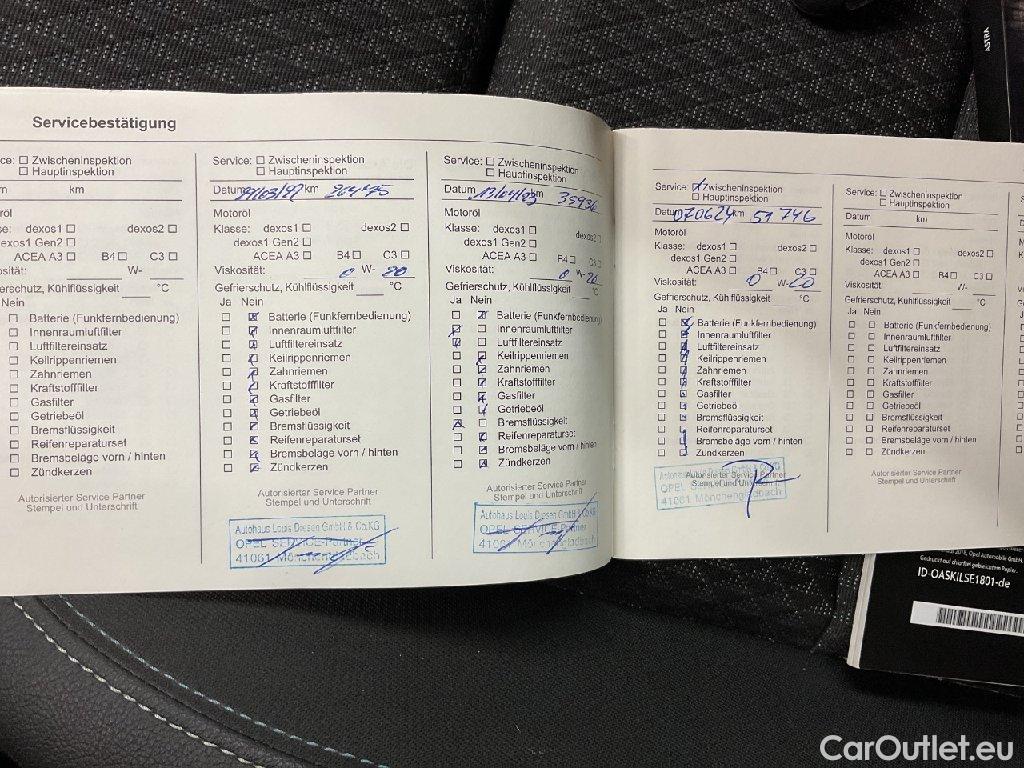 Servicebestätigung
ce: Zwischeninspektion
Hauptinspektion
km
Klasse: dexos1 dexos2
oexos1 Gen2
ACEA A3 B4 C3
W-
°C
Nein
Batterie (Funkfernbedienung)
Innenraumluftfilter
Luftfiltereinsatz
Keilrippenriemen
Zahnriemen
Kraftstoffilter
Gasfilter
Getriebeöl
Bremsflüssigkeit
Reifenreparaturset
Bremsbeläge vorn / hinten
Zündkerzen
Autorisierter Service Partner
Stempel und Unterschrift
Service: Zwischeninspektion
Hauptinspektion
Datum km
Motoröl
Klasse: dexos1 dexos2
dexos1 Gen2
ACEA A3 B4 C3
Viskosität: 0 W- 20
Gefrierschutz, Kühlflüssigkeit °C
Ja Nein
Batterie (Funkfernbedienung)
Innenraumluftfilter
Luftfiltereinsatz
Keilrippenriemen
Zahnriemen
Kraftstofffilter
Gasfilter
Getriebeöl
Bremsflüssigkeit
Reifenreparaturset
Bremsbeläge vorn / hinten
Zündkerzen
Autorisierter Service Partner
Stempel und Unterschrift
Autohaus Louis Dresen GmbH & Co.KG
OPEL SERVICE-Partner
41061 Mönchengladbach
Service: Zwischeninspektion
Hauptinspektion
Datum km 35936
Motoröl
Klasse: dexos1 dexos2
dexos1 Gen2
ACEA A3 B4 C3
Viskosität: 0 W- 20
Gefrierschutz, Kühlflüssigkeit °C
Ja Nein
Batterie (Funkfernbedienung)
Innenraumluftfilter
Luftfiltereinsatz
Keilrippenriemen
Zahnriemen
Kraftstofffilter
Gasfilter
Getriebeöl
Bremsflüssigkeit
Reifenreparaturset
Bremsbeläge vorn / hinten
Zündkerzen
Autorisierter Service Partner
Stempel und Unterschrift
Autohaus Louis Dresen GmbH & Co.KG
OPEL SERVICE-Partner
41061 Mönchengladbach
Service: Zwischeninspektion
Hauptinspektion
Datum 070624 km 51746
Motoröl
Klasse: dexos1 dexos2
dexos1 Gen2
ACEA A3 B4 C3
Viskosität: 0 W- 20
Gefrierschutz, Kühlflüssigkeit °C
Ja Nein
Batterie (Funkfernbedienung)
Innenraumluftfilter
Luftfiltereinsatz
Keilrippenriemen
Zahnriemen
Kraftstofffilter
Gasfilter
Getriebeöl
Bremsflüssigkeit
Reifenreparaturset
Bremsbeläge vorn / hinten
Zündkerzen
Autorisierter Service Partner
Stempel und Unterschrift
41061 Mönchengladbach
Service: Zwischeninspektion
Hauptinspektion
Datum km
Motoröl
Klasse: dexos1 dexos2
dexos1 Gen2
ACEA A3 B4 C3
Viskosität W-
Gefrierschutz, Kühlflüssigkeit °C
Ja Nein
Batterie (Funkfernbedienung)
Innenraumluftfilter
Luftfiltereinsatz
Keilrippenriemen
Zahnriemen
Kraftstofffilter
Gasfilter
Getriebeöl
Bremsflüssigkeit
Reifenreparaturset
Bremsbeläge vorn / hinten
Zündkerzen
Autorisierter Service Partner
Stempel und Unterschrift
ASTRA
ID-OASKILSE1801-de
CarOutlet.eu